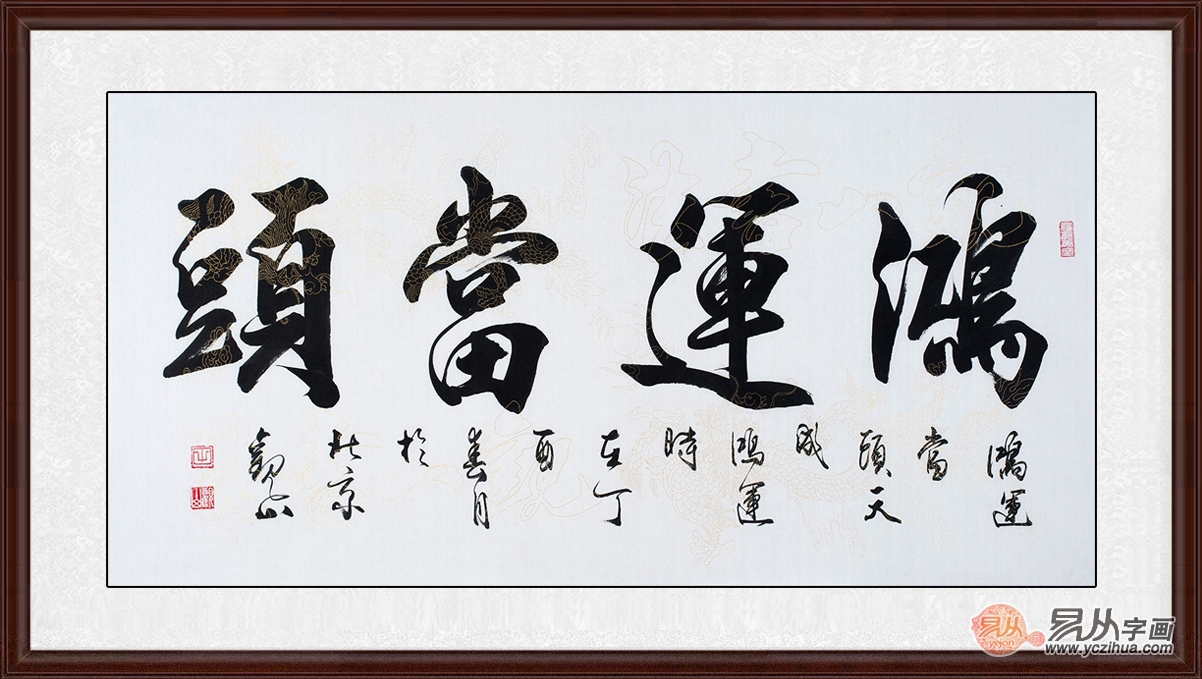 鴻運當頭
鴻運當頭天成鴻運時在丁酉春月於北京觀山
易从字画
www.yczihua.com